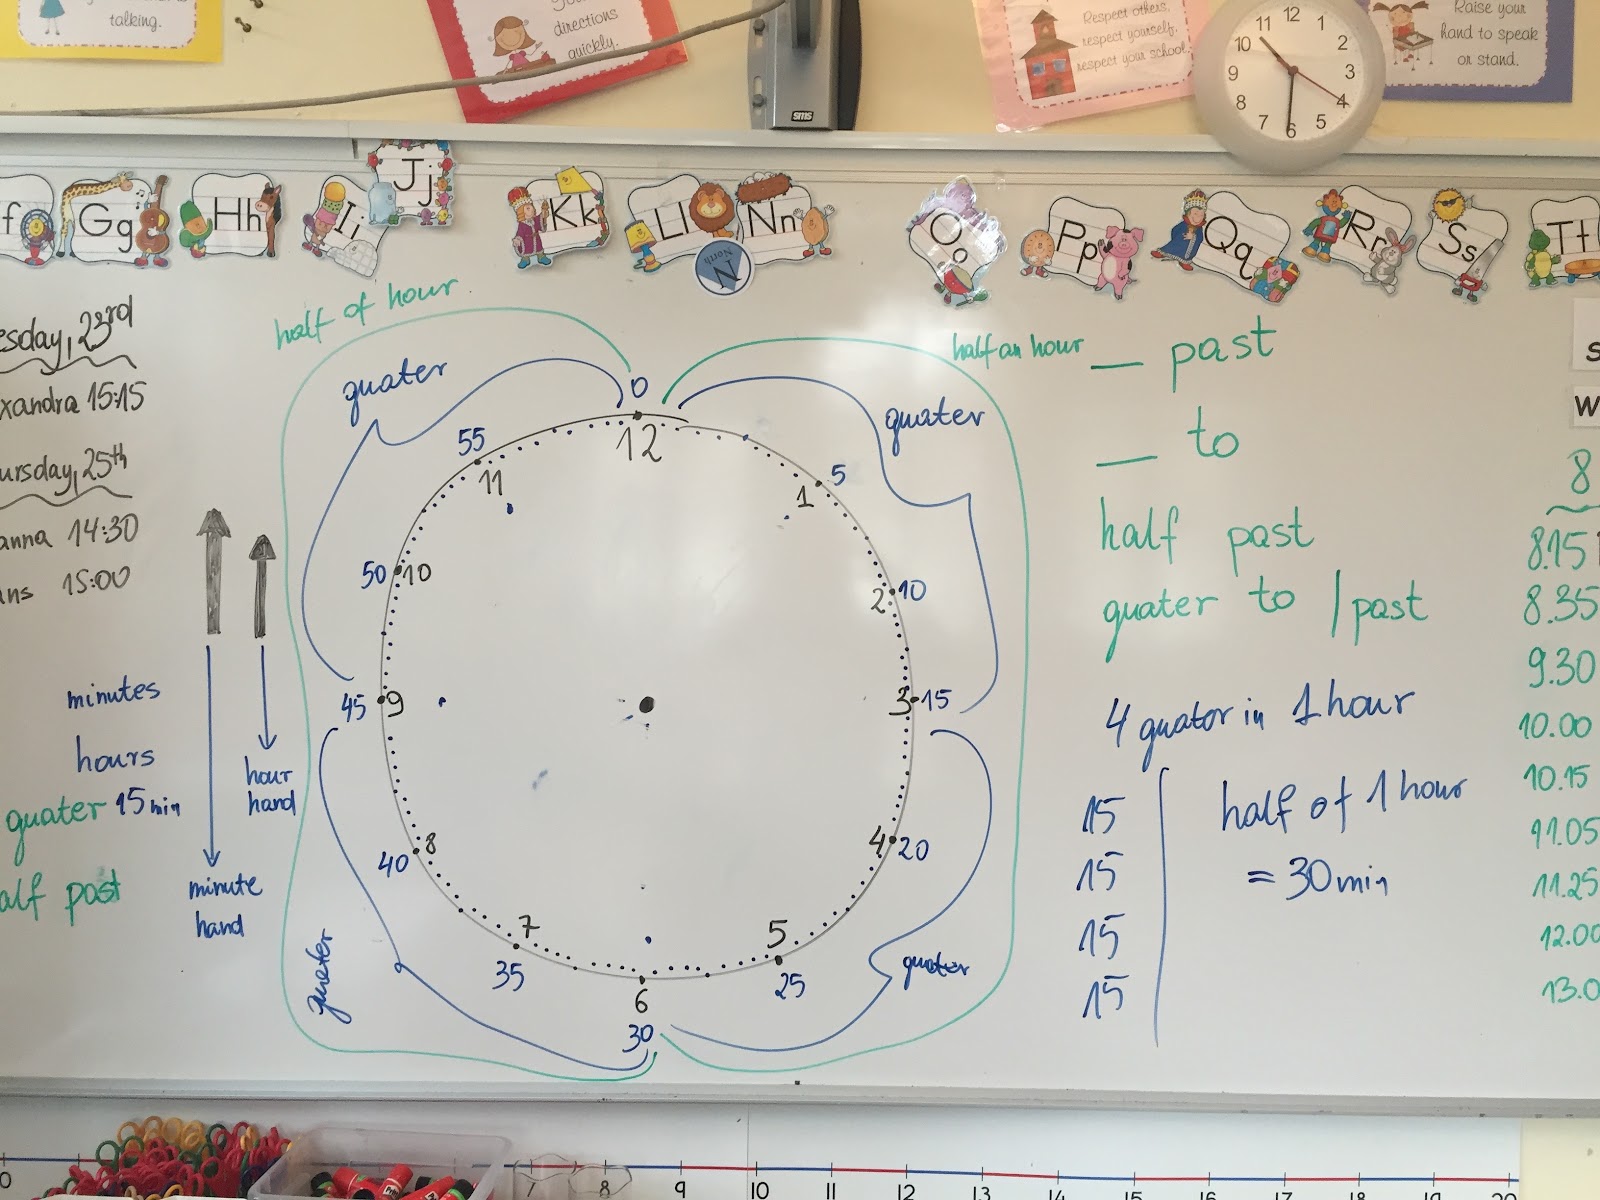 talking.
directions
quickly.
sms
Respect others,
respect yourself,
respect your school.
Raise your
hand to speak
or stand.
12
1
2
3
4
5
6
7
8
9
10
11
f
Gg
Hh
Ii
Jj
Kk
Ll
Nn
N
North
Oo
Pp
Qq
Rr
Ss
Tt
esday, 23rd
xandra 15:15
ursday, 25th
anna 14:30
ns 15:00
minutes
hours
quater 15 min
alf past
minute
hand
hour
hand
half of hour
half an hour
quater
quater
quater
quater
0
5
10
15
20
25
30
35
40
45
50
55
12
1
2
3
4
5
6
7
8
9
10
11
_ past
_ to
half past
quater to / past
4 quater in 1 hour
15
15
15
15
half of 1 hour
= 30 min
s
W
8
8.15
8.35
9.30
10.00
10.15
11.05
11.25
12.00
13.0
0
7 8 9 10 11 12 13 14 15 16 17 18 19 20